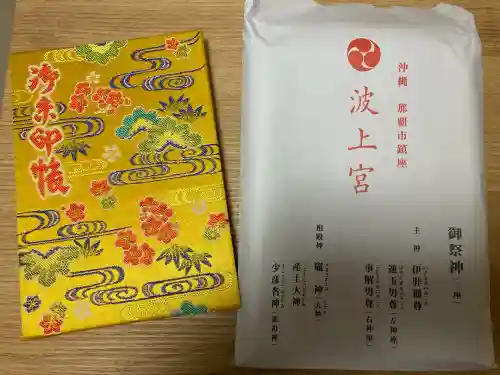 御朱印帳
沖縄 那覇市鎮座
波上宮
御祭神
主神
伊弉冊尊
速玉男尊(左神座)
事解男尊(右神座)
相殿神
産土大神
少彦名神